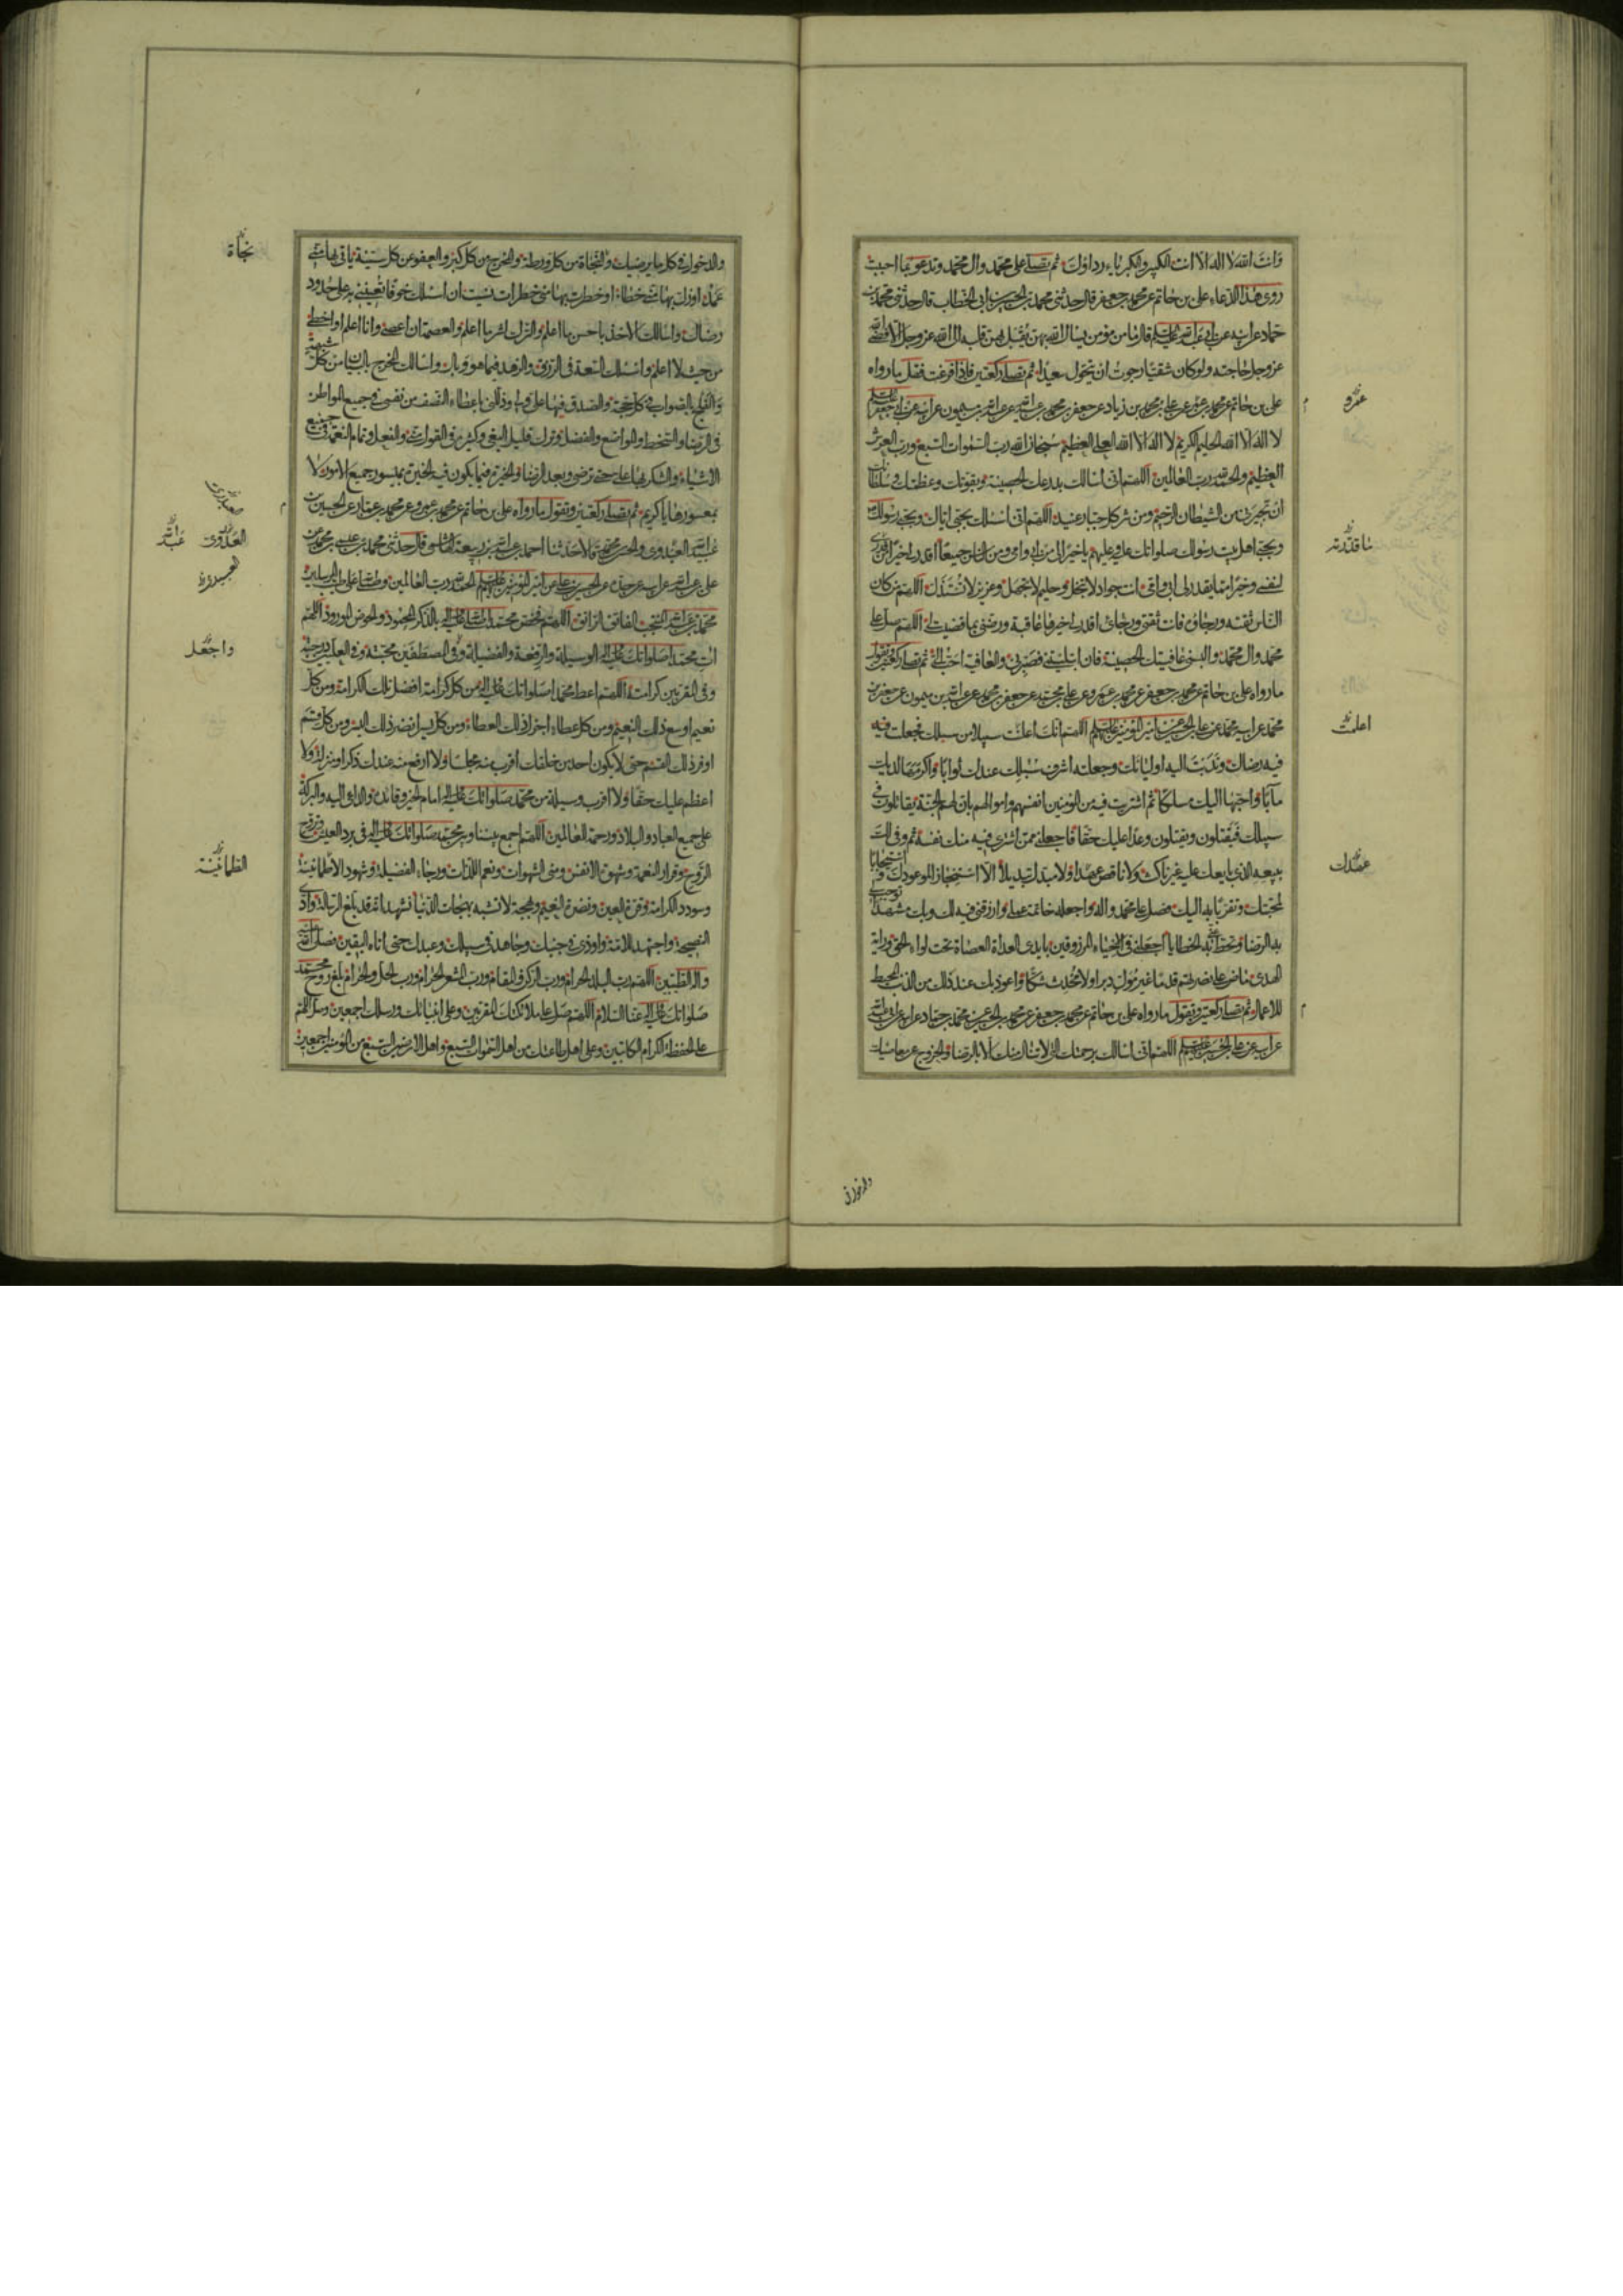 وانت الله لا اله الا انت الكبير والكبرياء رداؤك ثم تصلى على محمد وال محمد وتدعو بما احببت
روى هذا الدعاء على بن حاتم عن محمد بن جعفر قال حدثنى محمد بن الحسين بن ابى الخطاب قال حدثنى محمد بن
حماد عن ابيه عن ابى عبد الله عليه السلم قال ما من مؤمن يسال الله بهن يقبل بهن قلبه الى الله عز وجل الا قضى الله
عز وجل حاجته ولو كان شقيا رجوت ان يحول سعيدا ثم تصلى ركعتين فاذا فرغت فقل ما رواه
على بن حاتم عن محمد بن عمرو عن على بن محمد بن زياد عن جعفر بن محمد بن عبد الله عن عبد الله بن ميمون عن ابيه عن ابى جعفر عليه السلم
لا اله الا الله الحليم الكريم لا اله الا الله العلى العظيم سبحان الله رب السموات السبع ورب العرش
العظيم والحمد لله رب العالمين اللهم انى اسالك بدرعك الحصينة وبقوتك وعظمتك وسلطانك
ان تجيرنى من الشيطان الرجيم ومن شر كل جبار عنيد اللهم انى اسئلك بحبى اياك وبحبى رسولك
وبحبى اهل بيت رسولك صلواتك عليه وعليهم يا خيرا لى من ابى وامى ومن الناس جميعا اقدر لى خيرا من قدرى
لنفسى وخيرا مما يقدر لى ابى وامى انت جواد لا تبخل وحليم لا تجهل وعزيز لا تستذل اللهم من كان
الناس ثقته ورجاؤه فانت ثقتى ورجائى اقدر لى خيرها عاقبة ورضنى بما قضيت لى اللهم صل على
محمد وال محمد والبسنى عافيتك الحصينة فان ابتليتنى فصبرنى والعافية احب الى ثم تصلى ركعتين وتقول
ما رواه على بن حاتم عن محمد بن جعفر عن محمد بن عمرو عن على بن محمد عن جعفر بن محمد عن عبد الله بن ميمون عن جعفر بن
محمد عن ابيه محمد عن على بن الحسين عن امير المؤمنين عليهم السلم اللهم انك اعلنت سبيلا من سبلك فجعلت فيه
فيه رضاك وندبت اليه اوليائك وجعلته اشرف سبلك عندك ثوابا واكرمها لديك
مآبا واحبها اليك مسلكا ثم اشتريت فيه من المؤمنين انفسهم واموالهم بان لهم الجنة يقاتلون فى
سبيلك فيقتلون ويقتلون وعدا عليك حقا فاجعلنى ممن اشترى فيه منك نفسه ثم وفى لك
ببيعه الذى بايعك عليه غير ناكث ولا ناقض عهدا ولا مبدل تبديلا الا استنجازا لموعودك واستيجابا
لمحبتك وتقربا به اليك فصل على محمد واله واجعله خاتمة عملى وارزقنى فيه لك وبك مشهدا توجب لى
به الرضا وتحط عنى به الخطايا اجعلنى فى الاحياء المرزوقين بايدى العداة العصاة تحت لواء الحق وراية
الهدى ماض على نصرتهم قدما غير مول دبرا ولا محدث شكا واعوذ بك عند ذلك من الذنب المحبط
للاعمال ثم تصلى ركعتين وتقول ما رواه على بن حاتم عن محمد بن جعفر عن محمد بن الحسين عن محمد بن حماد عن ابيه عن ابى عبد الله
عن ابيه عن على بن الحسين عليهم السلم اللهم انى اسالك برحمتك التى لا تنال منك الا بالرضا والخروج عن معاصيك
عمرو
ما قدرته
اعلمت
عهدك
والدخول فى
والدخول فى كل ما يرضيك والنجاة من كل ورطة والمخرج من كل كبر والعفو عن كل سيئة ياتى بها منى
عمد او زل بها منى خطاء او خطرت بها منى خطرات نسيت ان اسئلك خوفا تعيننى به على حدود
رضاك واسالك الاخذ باحسن ما اعلم والترك لشر ما اعلم والعصمة ان اعصى وانا اعلم او اخطى
من حيث لا اعلم واسئلك السعة فى الرزق والزهد فيما هو وبال واسالك المخرج بالبيان من كل شبهة
والفلج بالصواب فى كل حجة والصدق فيما على ولى وذللنى باعطاء النصف من نفسى فى جميع المواطن
فى الرضا والسخط والتواضع والفضل وترك قليل البغى وكثيره فى القول منى والفعل وتمام النعمة فى جميع
الاشياء والشكر بها على حتى ترضى وبعد الرضا والخيرة فيما يكون فيه الخيرة بميسور جميع الامور لا
بمعسورها يا كريم ثم تصلى ركعتين وتقول ما رواه على بن حاتم عن محمد بن عمرو عن محمد بن عن الحسين بن
عبيد الله العبدوى والحسن بن محمد قالا حدثنا احمد بن عبد الله بن ربيعة الهاشمى قال حدثنى محمد بن عيسى بن محمد عن
على بن عبد الله عن ابيه عن جده عن الحسين بن على عن امير المؤمنين عليهم السلم الحمد لله رب العالمين وصلى الله على طيب المرسلين
محمد بن عبد الله المنتجب الفاتق الراتق اللهم فخص محمدا صلى الله عليه واله بالذكر المحمود والحوض المورود اللهم
ات محمدا صلواتك عليه واله الوسيلة والرفعة والفضيلة وفى المصطفين محبته وفى العليين درجته
وفى المقربين كرامته اللهم اعط محمدا صلواتك عليه واله من كل كرامة افضل تلك الكرامة ومن كل
نعيم اوسع ذلك النعيم ومن كل عطاء اجزل ذلك العطاء ومن كل يسر انضر ذلك اليسر ومن كل قسم
اوفر ذلك القسم حتى لا يكون احد من خلقك اقرب منه مجلسا ولا ارفع منه عندك ذكرا ومنزلة ولا
اعظم عليك حقا ولا اقرب وسيلة من محمد صلواتك عليه واله امام الخير وقائده والداعى اليه والبركة
على جميع العباد والبلاد ورحمة للعالمين اللهم اجمع بيننا وبين محمد صلواتك عليه واله فى برد العيش وتروح
الروح وقرار النعمة وشهوة الانفس ومنى الشهوات ونعم اللذات ورجاء الفضيلة وشهود الاطمانينة
وسودد الكرامة وقرة العين ونضرة النعيم وبهجة لا تشبه بهجات الدنيا نشهد انه قد بلغ الرسالة وادى
النصيحة واجتهد للامة واوذى فى جنبك وجاهد فى سبيلك وعبدك حتى اتاه اليقين فصلى الله عليه
واله الطيبين اللهم رب البلد الحرام ورب الركن والمقام ورب المشعر الحرام ورب الحل والحرام بلغ روح محمد
صلواتك عليه واله عنا السلام اللهم صل على ملائكتك المقربين وعلى انبيائك ورسلك اجمعين وصل اللهم
على الحفظة الكرام الكاتبين وعلى اهل طاعتك من اهل السموات السبع واهل الارضين السبع من المؤمنين اجمعين
نجاة
العلوى
عبد الله
واجعل
الطمانينة